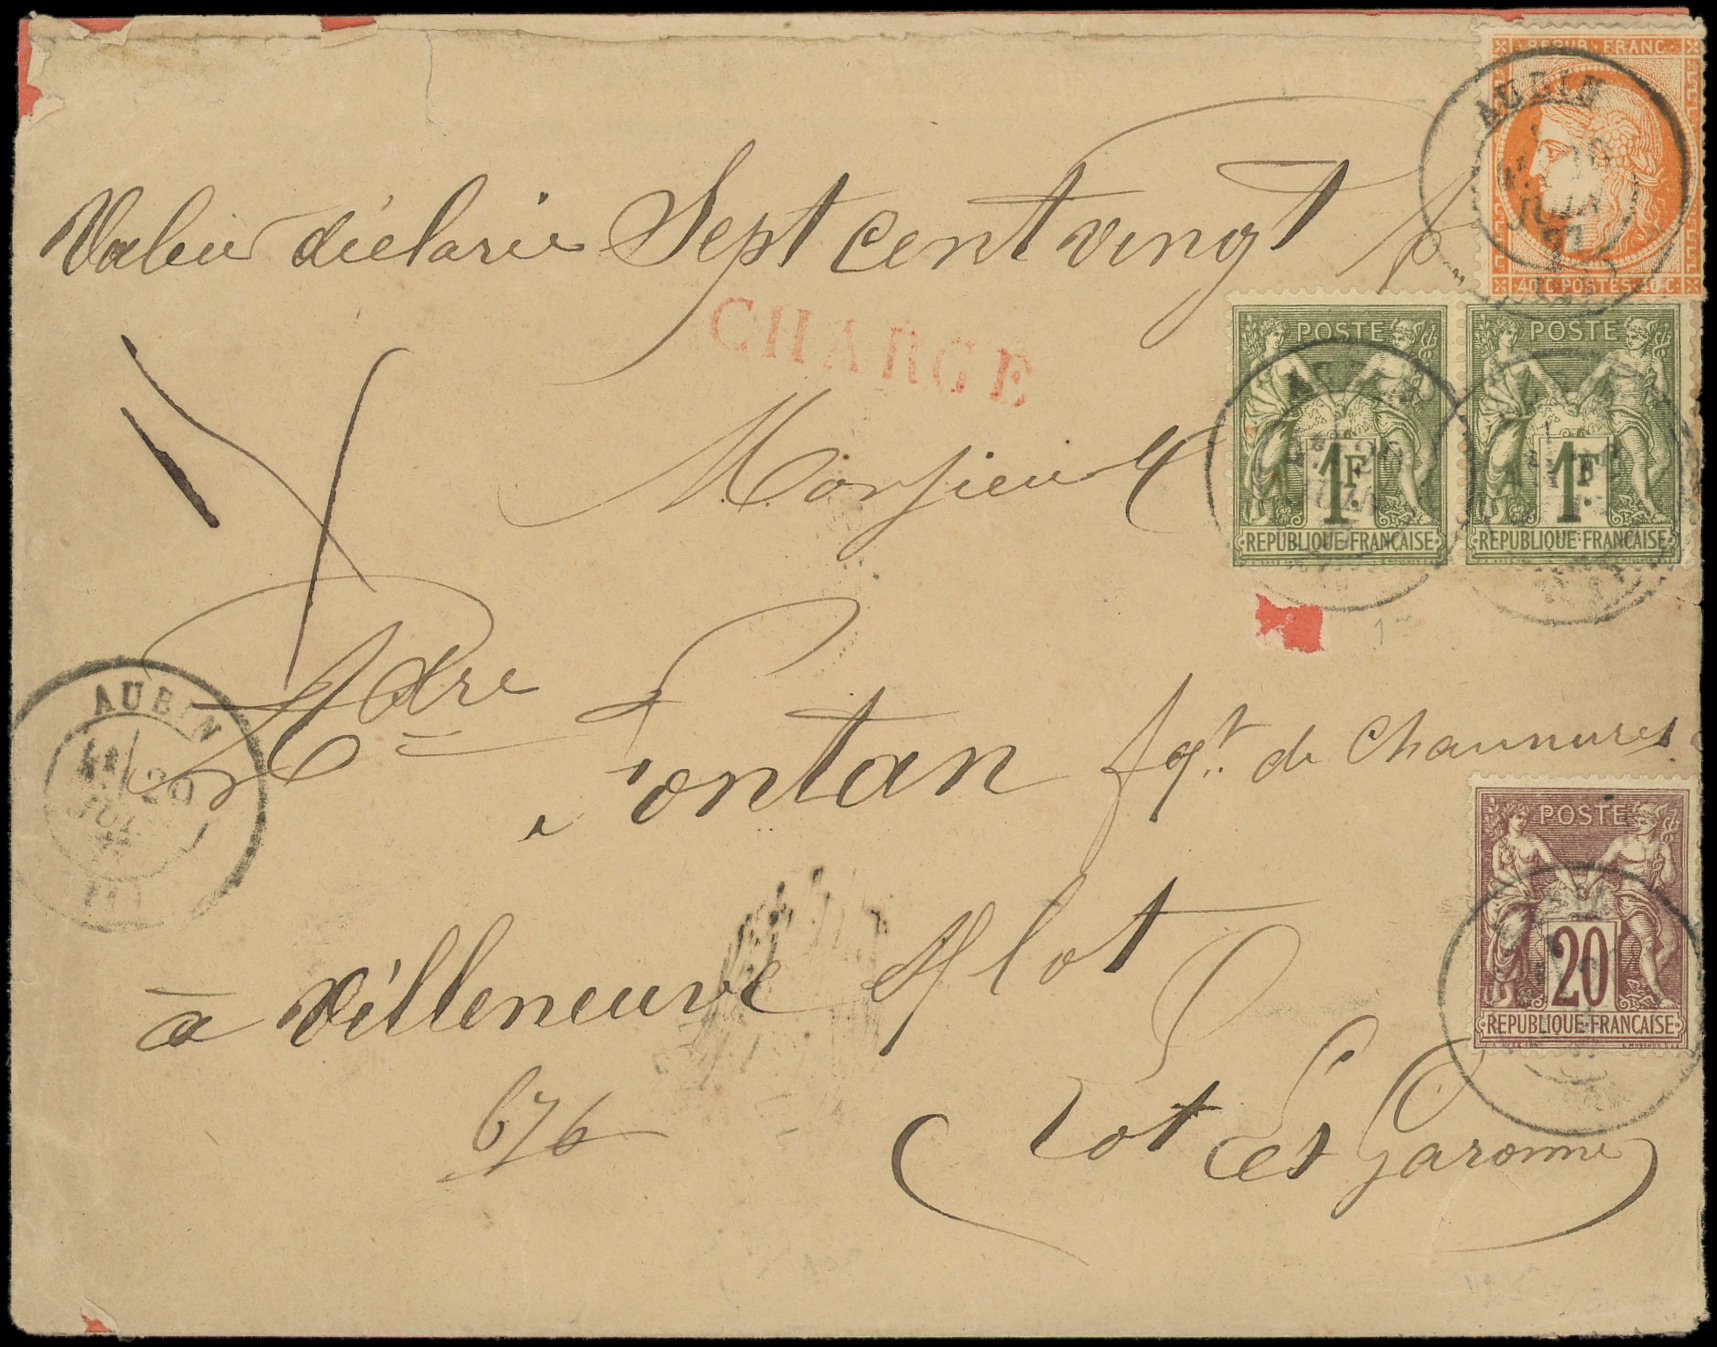 REPUB · FRANC
40·C·POSTES·40·C
AUBIN
20
JUIN
Valeur déclarée Sept cent vingt f
CHARGÉ
POSTE
1F
REPUBLIQUE FRANÇAISE
POSTE
1F
REPUBLIQUE FRANÇAISE
Monsieur
Adre Fontan fqt. de Chaussures
AUBIN
20
POSTE
20
REPUBLIQUE FRANÇAISE
à Villeneuve s/ lot
676
Lot et Garonne